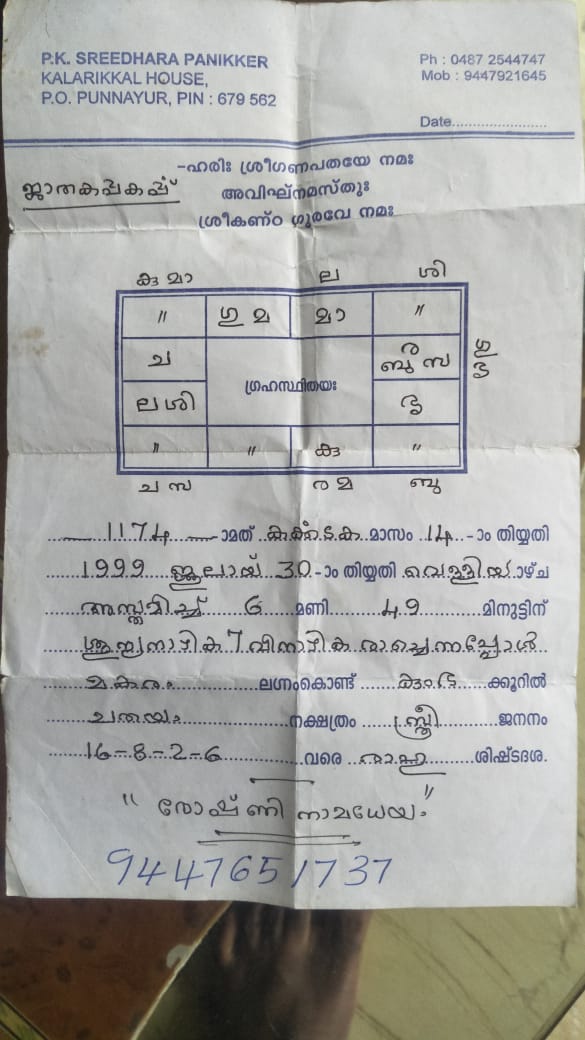 P.K. SREEDHARA PANIKKER
KALARIKKAL HOUSE,
P.O. PUNNAYUR, PIN : 679 562
Ph : 0487 2544747
Mob : 9447921645
Date........................
-ഹരിഃ ശ്രീഗണപതയേ നമഃ
അവിഘ്നമസ്തുഃ
ശ്രീകണ്ഠ ഗുരവേ നമഃ
കു മാ ല ശി
" ഗു മ മാ "
ച ര ബു സ ഗു
ഗ്രഹസ്ഥിതയഃ
ല ശി
" " കു "
ച സ ര മ ബു
1174 ാമത് കർക്കടക മാസം 14 -ാം തിയ്യതി
1999 ജൂലായ് 30 -ാം തിയ്യതി വെള്ളിയാഴ്ച
അസ്തമിച്ച് 6 മണി 49 മിനുട്ടിന്
മകരം ലഗ്നംകൊണ്ട് കുംഭ ക്കൂറിൽ
ചതയം നക്ഷത്രം സ്ത്രീ ജനനം
16-8-2-6 വരെ രാഹു ശിഷ്ടദശ.
" രോഷ്ണി നാമധേയം "
9447651737